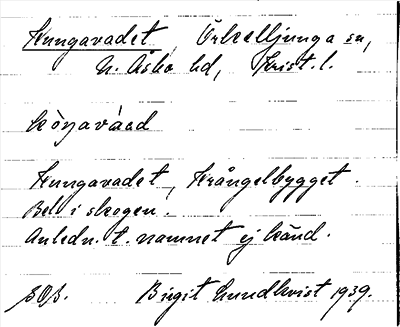 Kungavadet, Örkelljunga sn,
N. Åsbo hd, Krist. l.
Kungavadet, Krångelbygget.
Bel. i skogen.
Anledn. t. namnet ej känd.
Birgit Lundkvist 1939.